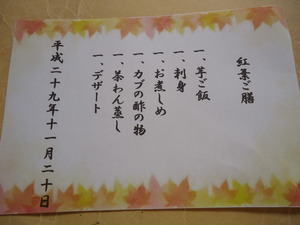 紅葉ご膳
一、芋ご飯
一、刺身
一、お煮しめ
一、カブの酢の物
一、茶わん蒸し
一、デザート
平成二十九年十一月二十日